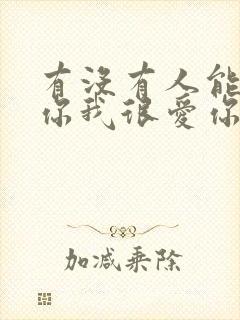 有没有人能
你我很爱你
加减乘除